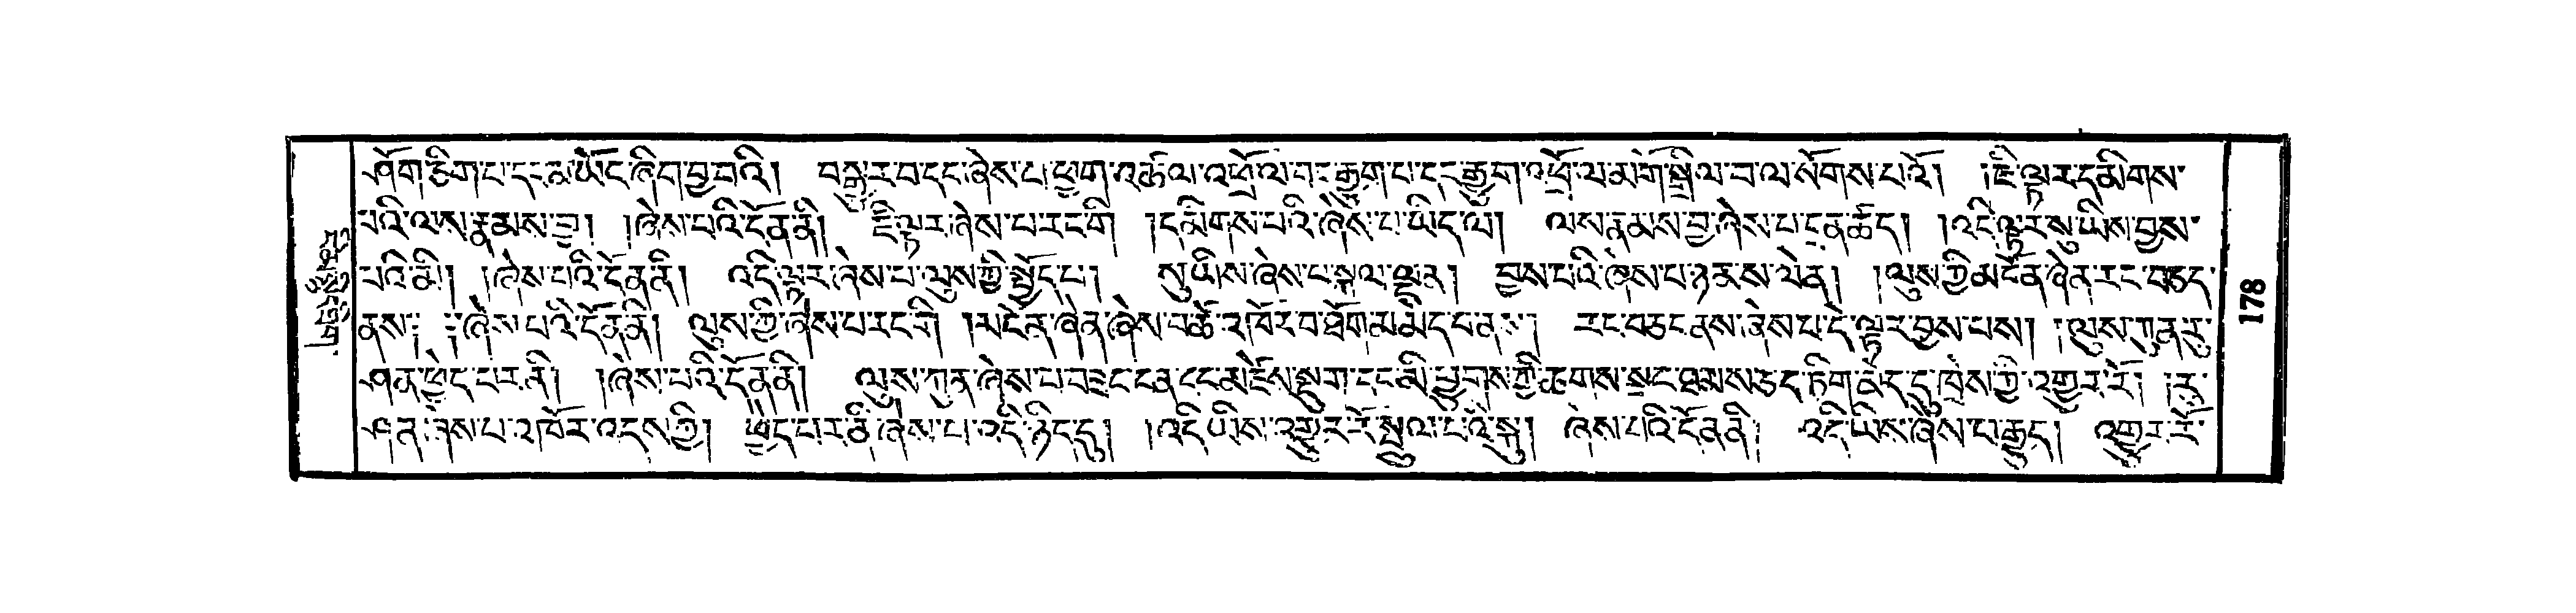 ཤོག་རྩིག་པ་དང་མ་ཡོང་ཞིག་བྱ་བའི། བསྒྱུར་བ་དང་ཞེས་པ་ཕྱག་འཚལ་འཕྲོ་ལ་བང་རྒྱུག་པ་དང་རྒྱུག་འཕྲོ་ལ་མགོ་སྒྲིལ་བ་ལ་སོགས་པའོ། །ཇི་ལྟར་དམིགས་
པའི་ལས་རྣམས་བྱ། །ཞེས་པའི་དོན་ནི། ཇི་ལྟར་ཞེས་པ་རང་གི །དམིགས་པའི་ཞེས་པ་ཡིད་ལ། ལས་རྣམས་བྱ་ཞེས་པ་དྲན་ཚད། །འདི་ལྟར་སུ་ཡིས་བྱས་
པའི་མི། །ཞེས་པའི་དོན་ནི། འདི་ལྟར་ཞེས་པ་ལུས་ཀྱི་སྤྱོད་པ། སུ་ཡིས་ཞེས་པ་སྐལ་ལྡན། བྱས་པའི་ཞེས་པ་ཉམས་ལེན། །ལུས་ཀྱི་མངོན་ཞེན་རང་བཅད་
ནས། །ཞེས་པའི་དོན་ནི། ལུས་ཀྱི་ཞེས་པ་རང་གི །མངོན་ཞེན་ཞེས་བཚོ་འཁོར་བ་ཐོག་མ་མེད་པ་ནས། རང་བཅད་ནས་ཞེས་པ་དེ་ལྟར་བྱས་པས། །ལུས་ཀུན་རུ་
ཤན་ཕྱེད་པར་ནི། །ཞེས་པའི་དོན་ནི། ལུས་ཀུན་ཞེས་པ་བཟང་ངན་དང་མཛེས་སྡུག་དང་མི་ཕྱུགས་ཀྱི་ཆགས་སྡང་ཐམས་ཅད་ཏིག་ནེད་དུ་ཁྲེས་ཀྱི་འགྱུར་རོ། །རུ་
ཤན་ཞེས་པ་འཁོར་འདས་ཀྱི། ཕྱེད་པར་ནི་ཞེས་པ་འདི་ཉིད་དུ། །འདི་ཡིས་འགྱུར་རོ་སྤྲུལ་པའི་སྐུ། ཞེས་པའི་དོན་ནི། འདི་ཡིས་ཞེས་པ་རྒྱུད། འགྱུར་རོ་
178